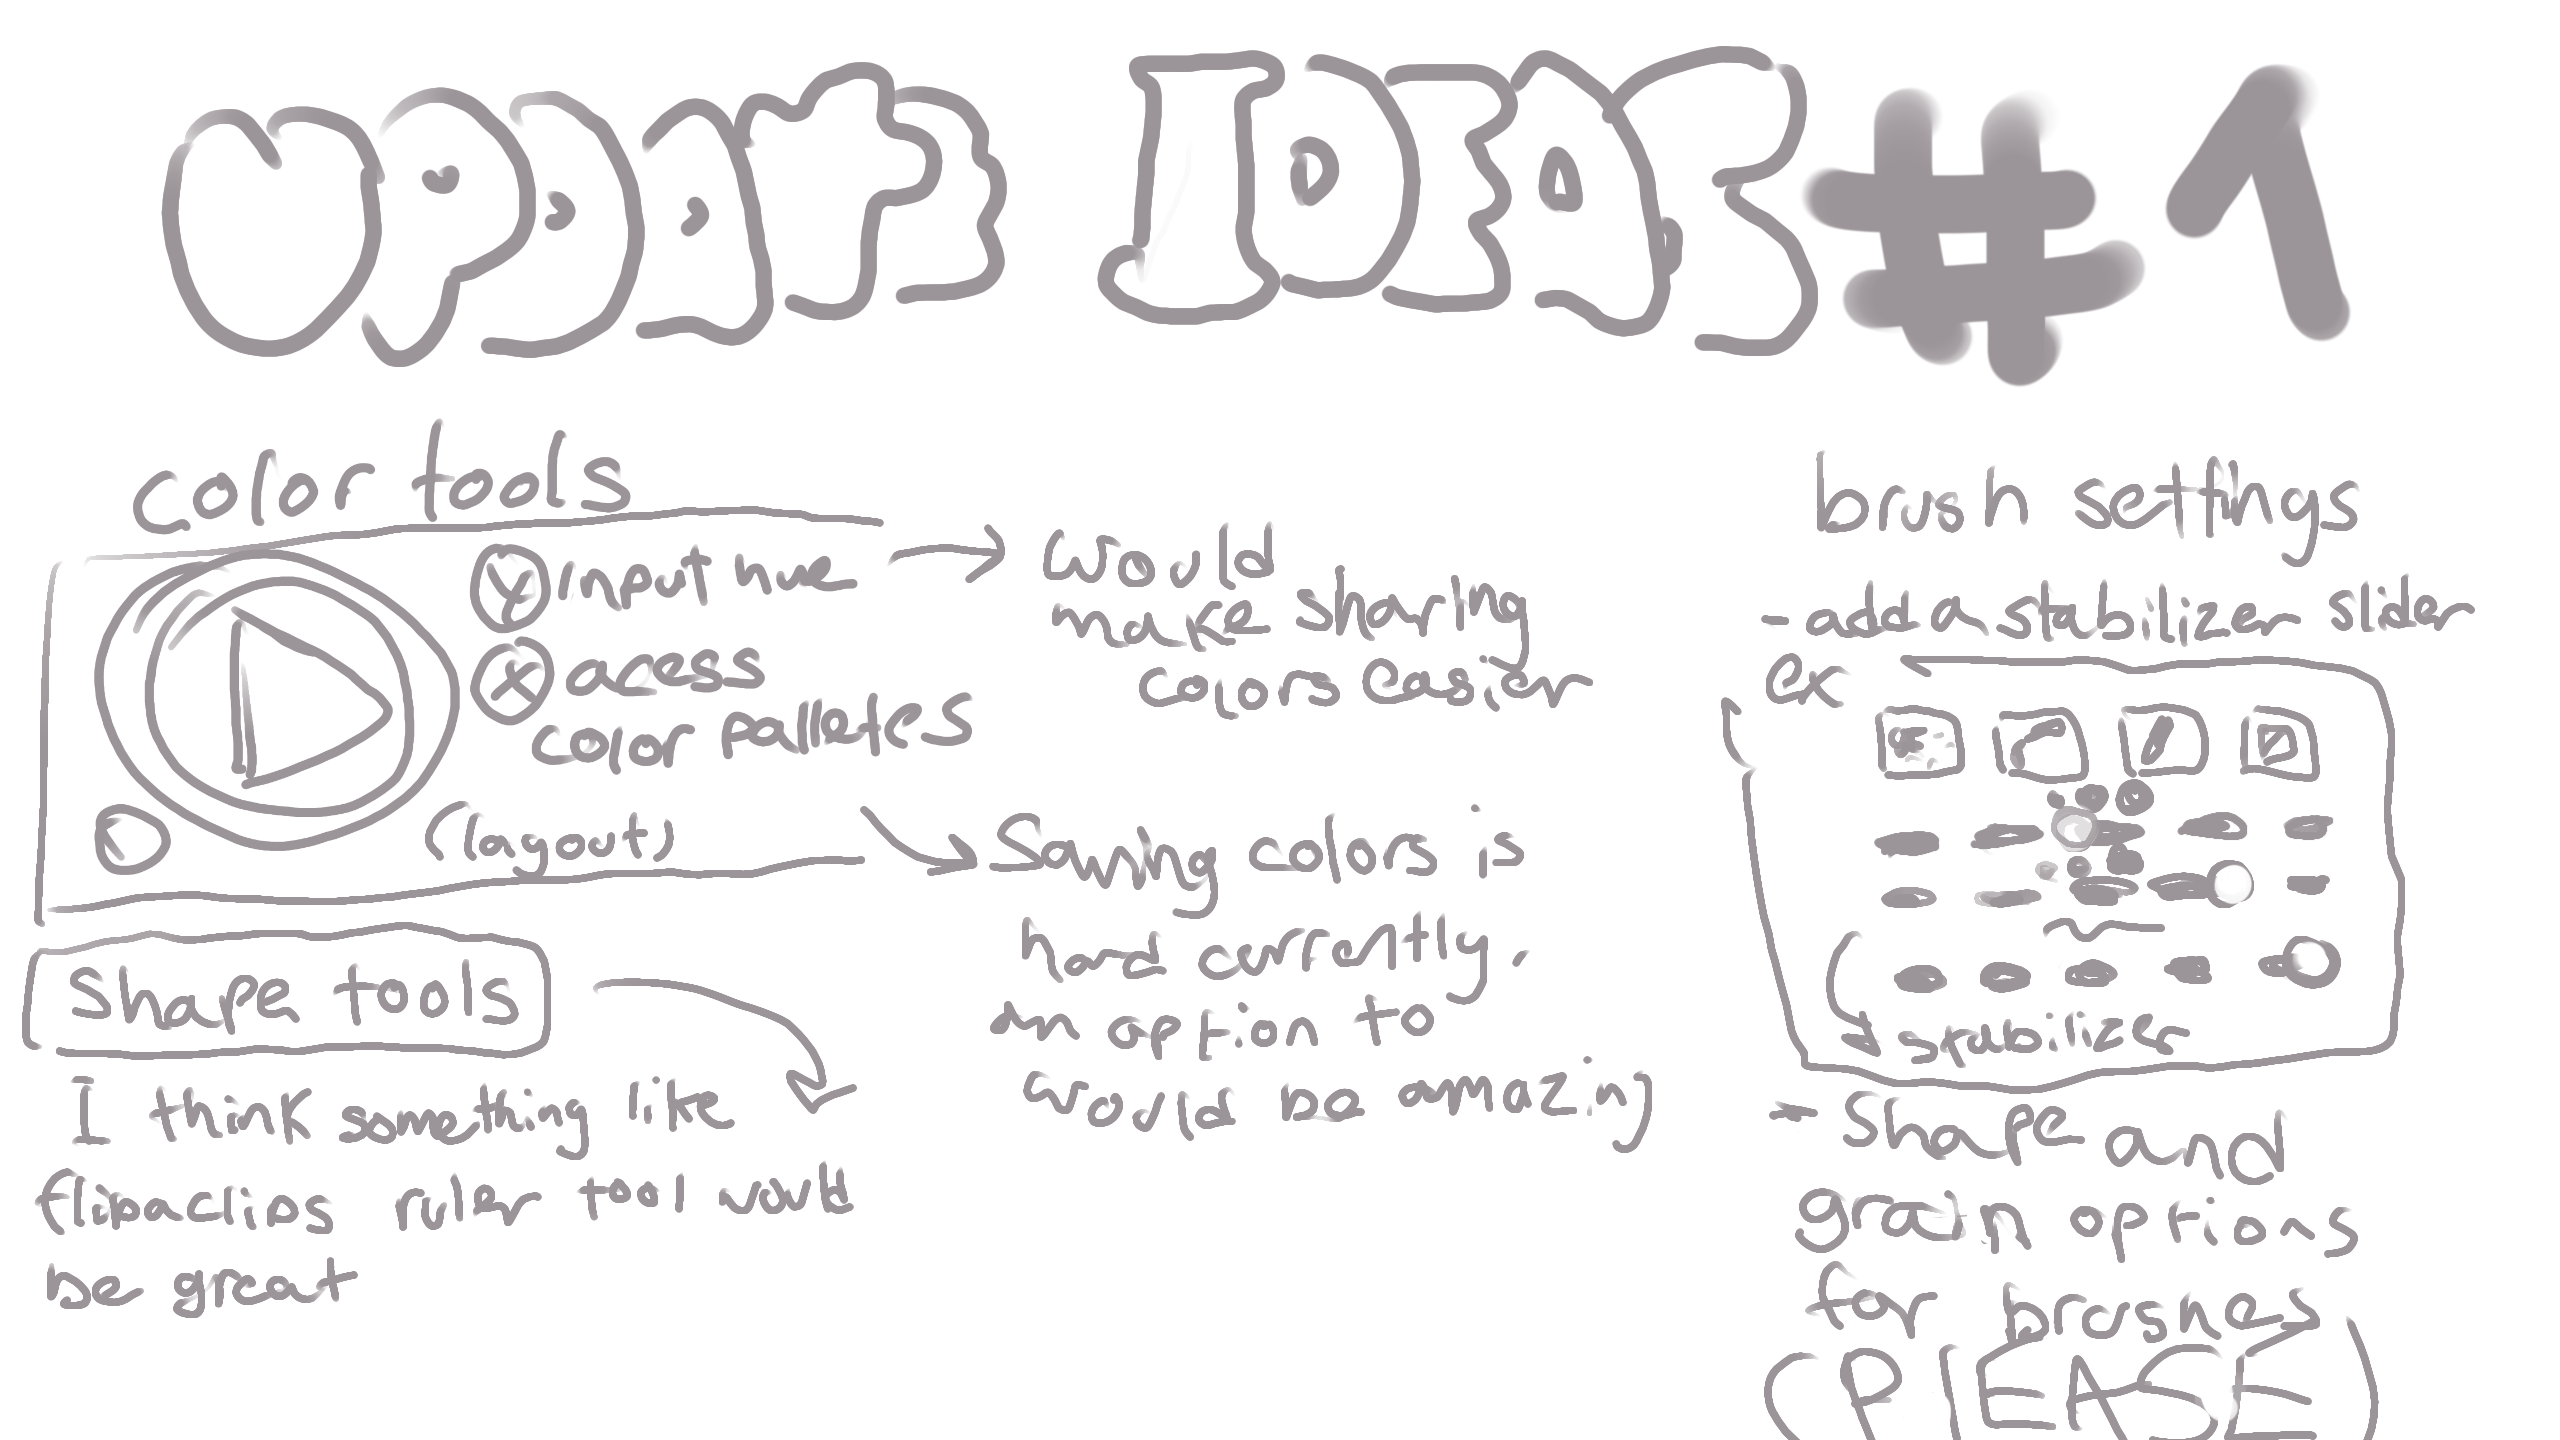 UPDATE IDEAS #1
color tools
Y input hue
X acess
color palletes
(layout)
would
make sharing
colors easier
Saving colors is
hard currently.
an option to
would be amazing
Shape tools
I think something like
flipaclips ruler tool would
be great
brush settings
- add a stabilizer slider
ex
stabilizer
- Shape and
grain options
for brushes
(PLEASE)